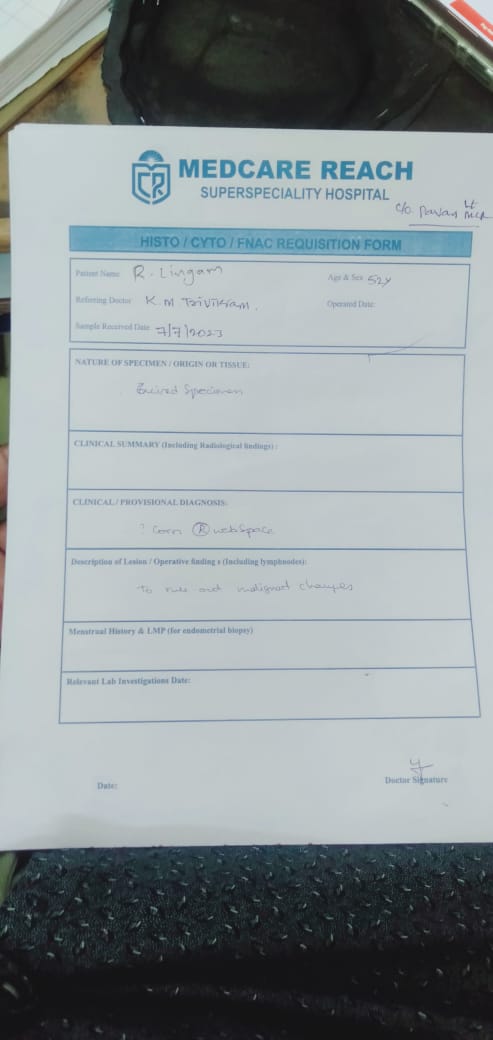 MEDCARE REACH
SUPERSPECIALITY HOSPITAL
C/o. Pavan
HISTO / CYTO / FNAC REQUISITION FORM
Patient Name: R. Lingam
Age & Sex: 52y
Referring Doctor: K. M Trivikram.
Operated Date:
Sample Received Date: 7/7/2023
NATURE OF SPECIMEN / ORIGIN OR TISSUE:
Excised Specimen
CLINICAL SUMMARY (Including Radiological findings) :
CLINICAL / PROVISIONAL DIAGNOSIS:
? Corn Ⓡ webspace
Description of Lesion / Operative finding s (Including lymphnodes):
To rule out malignant changes
Menstrual History & LMP (for endometrial biopsy)
Relevant Lab Investigations Date:
Date:
Doctor Signature